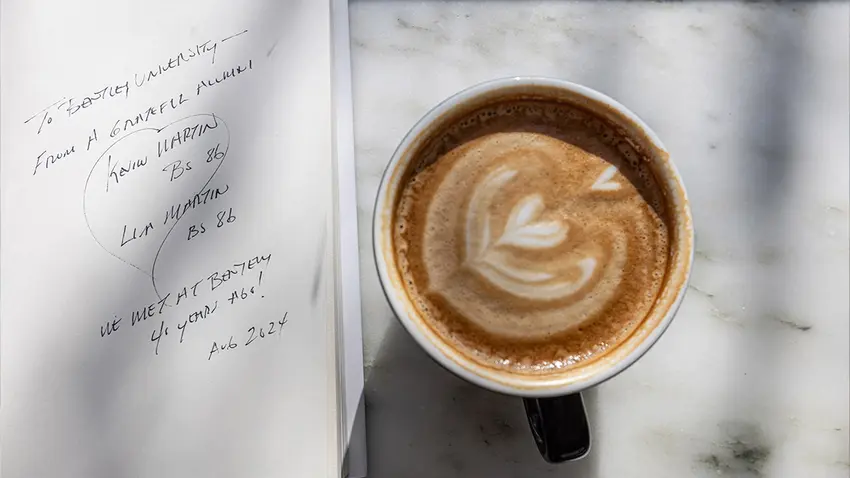 To BENTLEY UNIVERSITY —
FROM A GRATEFUL ALUMNI
KEVIN MARTIN
BS 86
LISA MARTIN
BS 86
WE MET AT BENTLEY
40 YEARS AGO!
AUG 2024